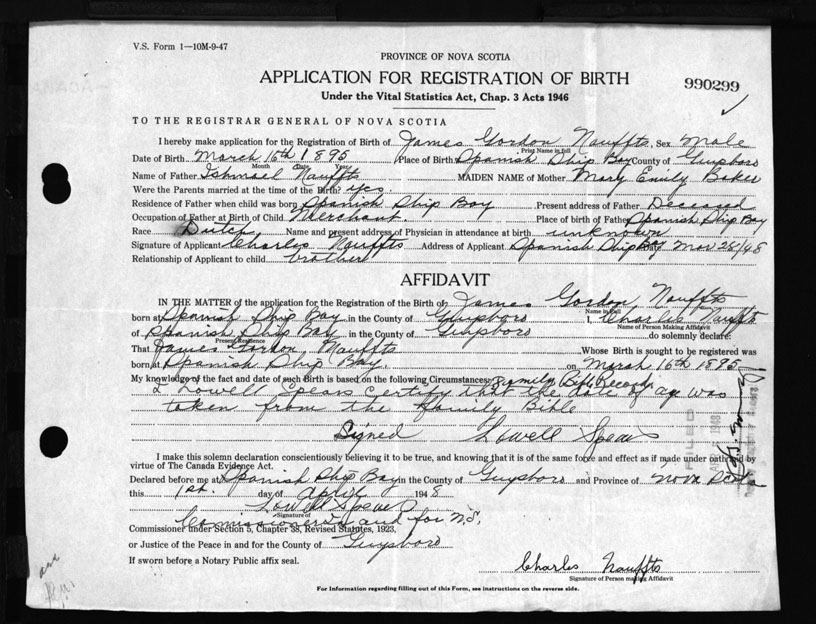 V.S. Form 1—10M-9-47
PROVINCE OF NOVA SCOTIA
APPLICATION FOR REGISTRATION OF BIRTH
990299
Under the Vital Statistics Act, Chap. 3 Acts 1946
TO THE REGISTRAR GENERAL OF NOVA SCOTIA
I hereby make application for the Registration of Birth of James Gordon Nauffts, Sex Male
Print Name in full
Date of Birth March 16th 1895 Place of Birth Spanish Ship Bay County of Guysboro
Month Date Year
Name of Father Ishmael Nauffts MAIDEN NAME of Mother Mary Emily Baker
Were the Parents married at the time of the Birth? yes.
Residence of Father when child was born Spanish Ship Bay Present address of Father Deceased
Occupation of Father at Birth of Child Merchant. Place of birth of Father Spanish Ship Bay
Race Dutch Name and present address of Physician in attendance at birth unknown
Signature of Applicant Charles Nauffts Address of Applicant Spanish Ship Bay Date Mar 28/48
Relationship of Applicant to child brother
AFFIDAVIT
IN THE MATTER of the application for the Registration of the Birth of James Gordon Nauffts
Name in full
born at Spanish Ship Bay in the County of Guysboro I, Charles Nauffts
Name of Person Making Affidavit
of Spanish Ship Bay in the County of Guysboro do solemnly declare:
Present Residence
That James Gordon Nauffts Whose Birth is sought to be registered was
born at Spanish Ship Bay. on March 16th 1895
My knowledge of the fact and date of such Birth is based on the following Circumstances: Family Bible Record.
I Lowell Spears certify that the date of age was
taken from the Family Bible
Signed Lowell Spears
I make this solemn declaration conscientiously believing it to be true, and knowing that it is of the same force and effect as if made under oath by
virtue of The Canada Evidence Act.
Declared before me at Spanish Ship Bay in the County of Guysboro and Province of Nova Scotia
this 1st. day of April 1948
Lowell Spears
Signature of
Commissioner in and for N.S.
Commissioner under Section 5, Chapter 38, Revised Statutes, 1923,
or Justice of the Peace in and for the County of Guysboro
If sworn before a Notary Public affix seal.
Charles Nauffts
Signature of Person making Affidavit
For Information regarding filling out of this Form, see instructions on the reverse side.